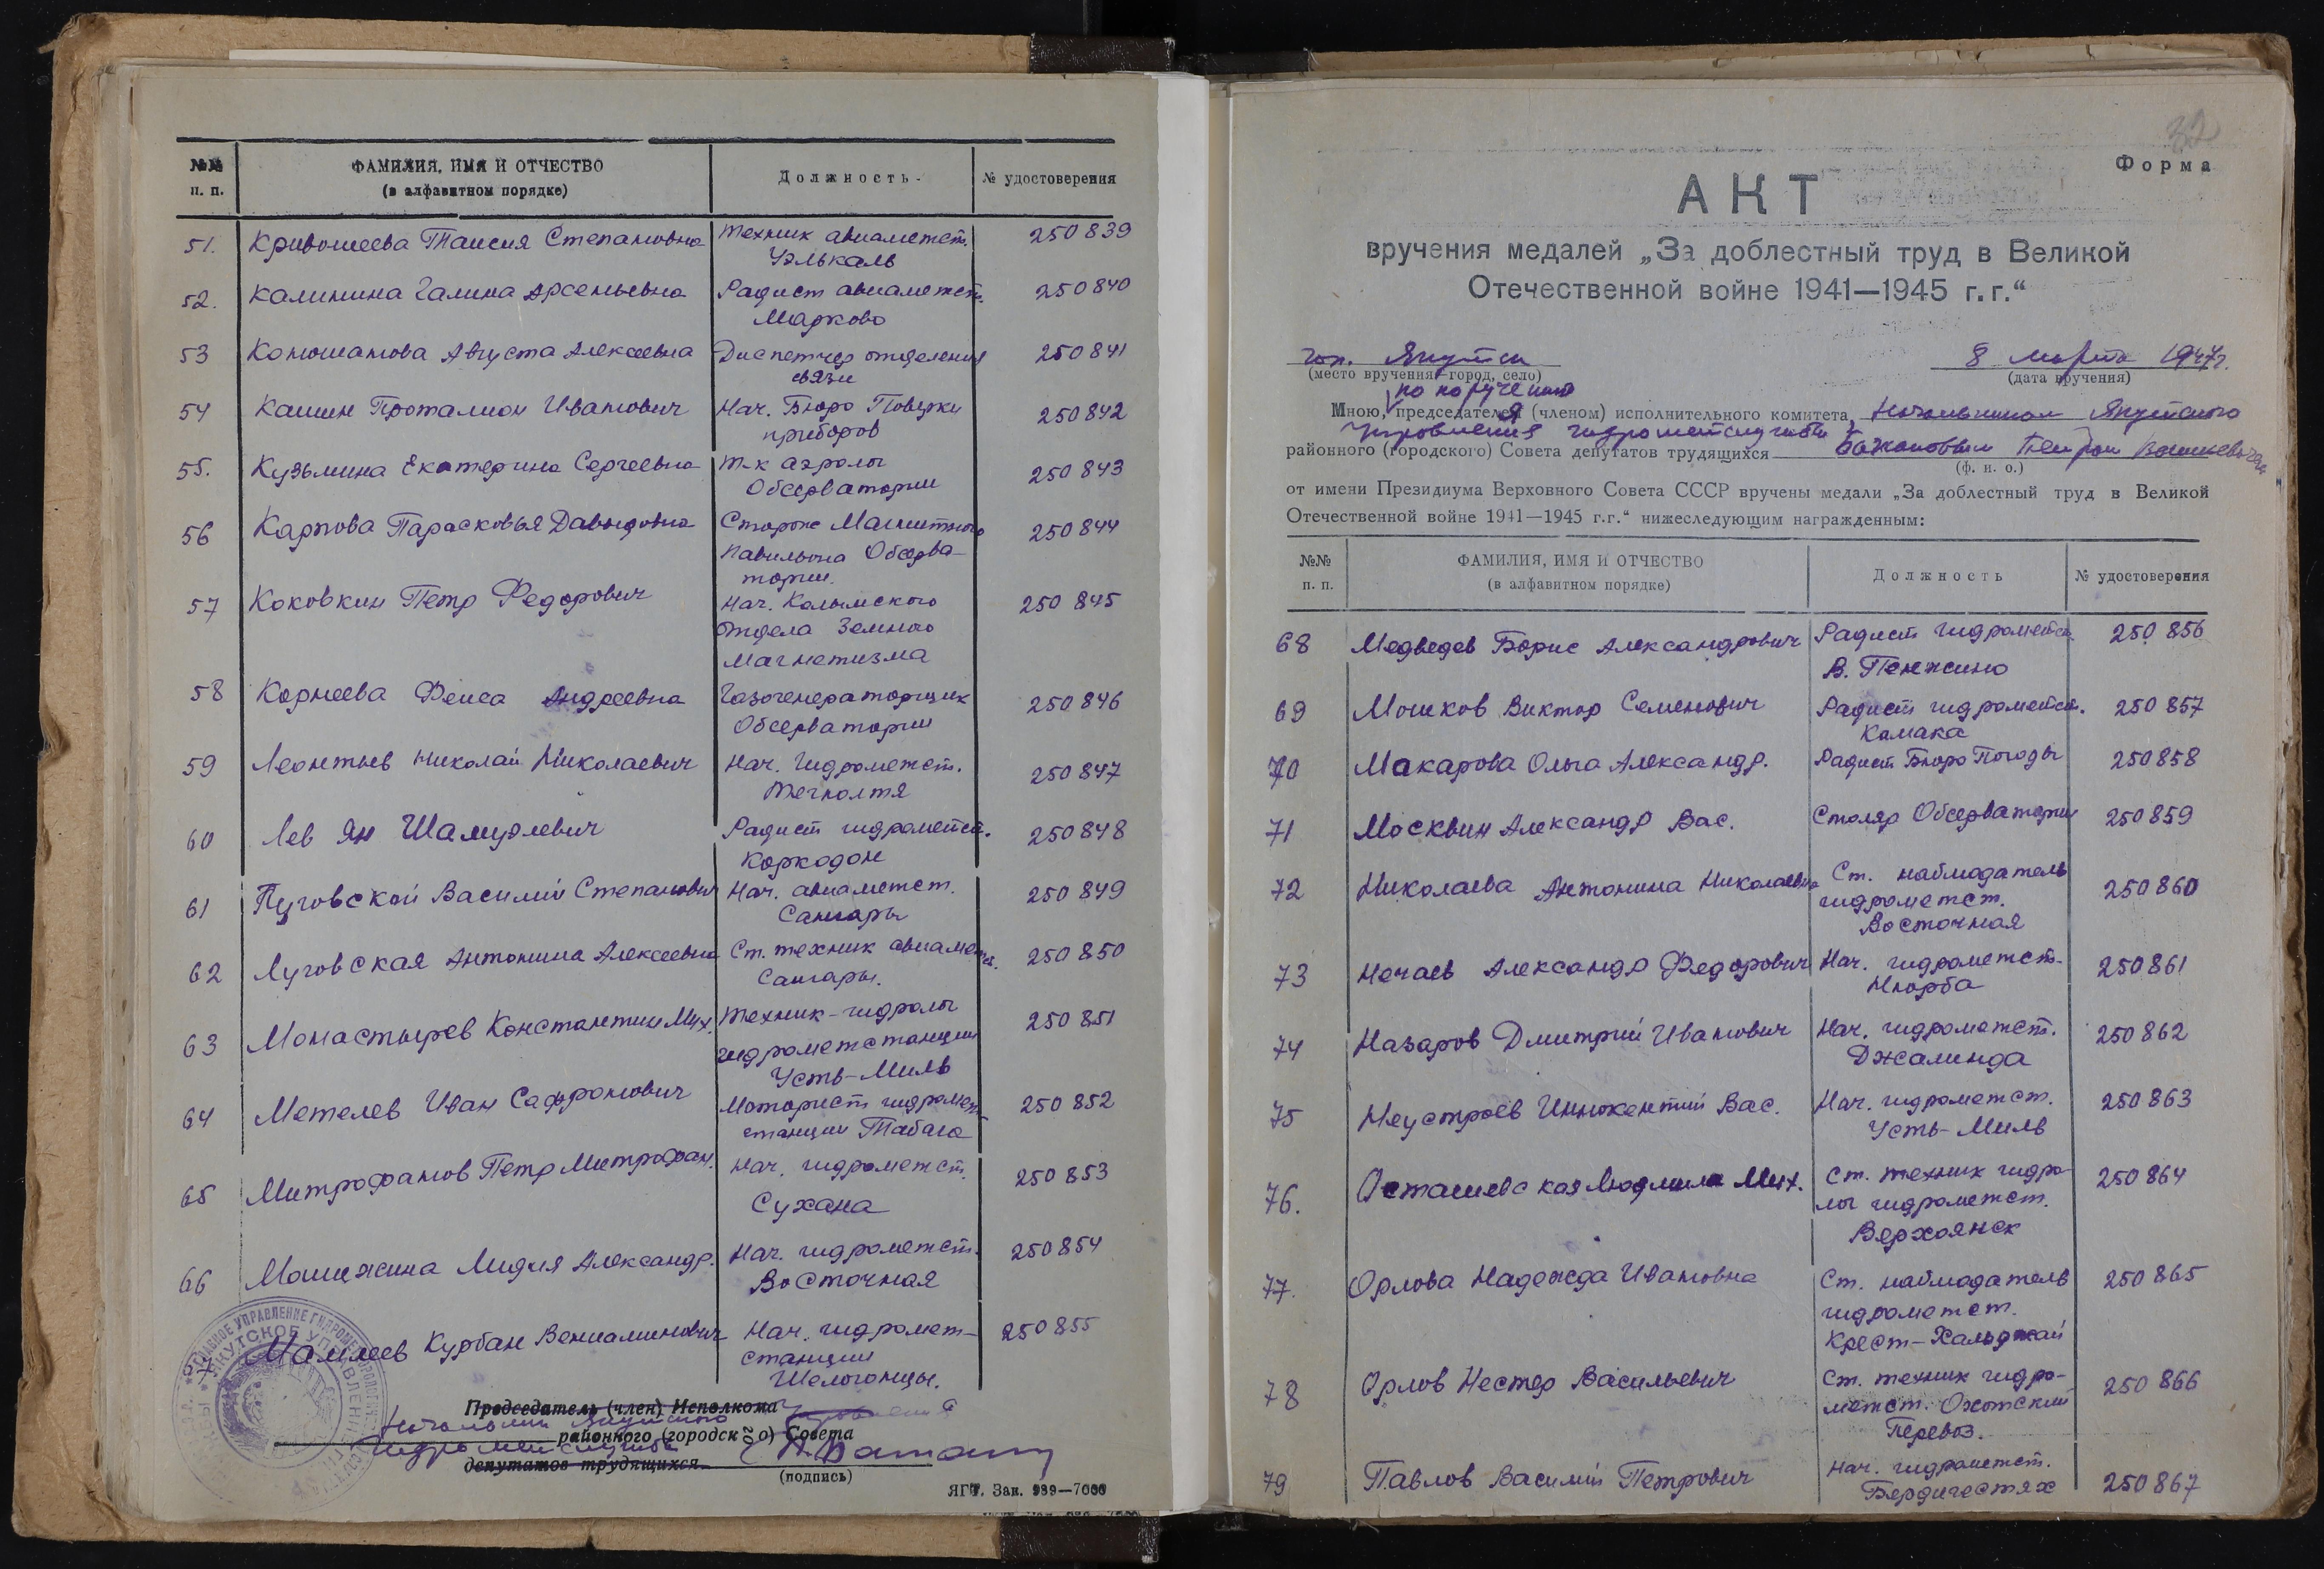 №№ п. п. ФАМИЛИЯ, ИМЯ И ОТЧЕСТВО (в алфавитном порядке) Должность № удостоверения
51. Кривошеева Таисия Степановна Техник авиаметст. 250839
Уэлькаль
52. Калинина Галина Арсеньевна Радист авиаметст. 250840
Марково
53 Конюшанова Августа Алексеевна Диспетчер отделения 250841
связи
54 Кашин Проталион Иванович Нач. Бюро Поверки 250842
приборов
55. Кузьмина Екатерина Сергеевна Т-к аэролог 250843
Обсерватории
56 Карпова Парасковья Давыдовна Сторож Магнитного 250844
павильона Обсерва-
тории.
57 Коковкин Петр Федорович Нач. Колымского 250 845
Отдела Земного
Магнетизма
58 Корнеева Феиса Андреевна Газогенераторщик 250846
Обсерватории
59 Леонтьев Николай Николаевич Нач. Гидрометст. 250847
60 Лев Ян Шамуэлевич Радист гидрометст. 250848
Коркодон
61 Пуговской Василий Степанович Нач. авиаметст. 250849
Сангары
62 Луговская Антонина Алексеевна Ст. техник авиаметст. 250850
Сангары.
63 Монастырев Константин Мих. Техник-гидролог 250851
гидрометстанции
Усть-Миль
64 Метелев Иван Сафронович Моторист гидромет- 250 852
станции Табага
65 Митрофанов Петр Митрофан. Нач. гидрометст. 250853
Сухана
66 Машежина Лидия Александр. Нач. гидрометст. 250854
Восточная
67 Малмеев Курбан Вениаминович Нач. гидромет- 250855
станции
Шелогонцы.
Председатель (член) Исполкома
Начальник Якутского Управления
районного (городского) Совета
гидрометслужбы
депутатов трудящихся
(подпись)
ЯГТ. Зак. 989—7000
32
Форма
АКТ
вручения медалей „За доблестный труд в Великой
Отечественной войне 1941—1945 г.г.“
гор. Якутск 8 марта 1947г.
(место вручения—город, село) (дата вручения)
по поручению
Мною, председателем (членом) исполнительного комитета, Начальником Якутского
Управления гидрометслужбы
районного (городского) Совета депутатов трудящихся Бажановым Петром Васильевичем
(ф. и. о.)
от имени Президиума Верховного Совета СССР вручены медали „За доблестный труд в Великой
Отечественной войне 1941—1945 г.г.“ нижеследующим награжденным:
№№ п. п. ФАМИЛИЯ, ИМЯ И ОТЧЕСТВО (в алфавитном порядке) Должность № удостоверения
68 Медведев Борис Александрович Радист гидрометст. 250 856
В. Пенжино
69 Мошков Виктор Семенович Радист гидрометст. 250 857
Камака
70 Макарова Ольга Александр. Радист Бюро Погоды 250858
71 Москвин Александр Вас. Столяр Обсерватории 250859
72 Николаева Антонина Николаевна Ст. наблюдатель 250860
гидрометст.
Восточная
73 Нечаев Александр Федорович Нач. гидрометст. 250861
Нюрба
74 Назаров Дмитрий Иванович Нач. гидрометст. 250862
Джалинда
75 Неустроев Иннокентий Вас. Нач. гидрометст. 250863
Усть-Миль
76. Осташевская Людмила Мих. Ст. техник гидро- 250864
лог гидрометст.
Верхоянск
77. Орлова Надежда Ивановна Ст. наблюдатель 250865
гидрометст.
Крест-Хальджай
78 Орлов Нестер Васильевич Ст. техник гидро- 250 866
метст. Охотский
Перевоз.
79 Павлов Василий Петрович Нач. гидрометст. 250867
Бердигестях